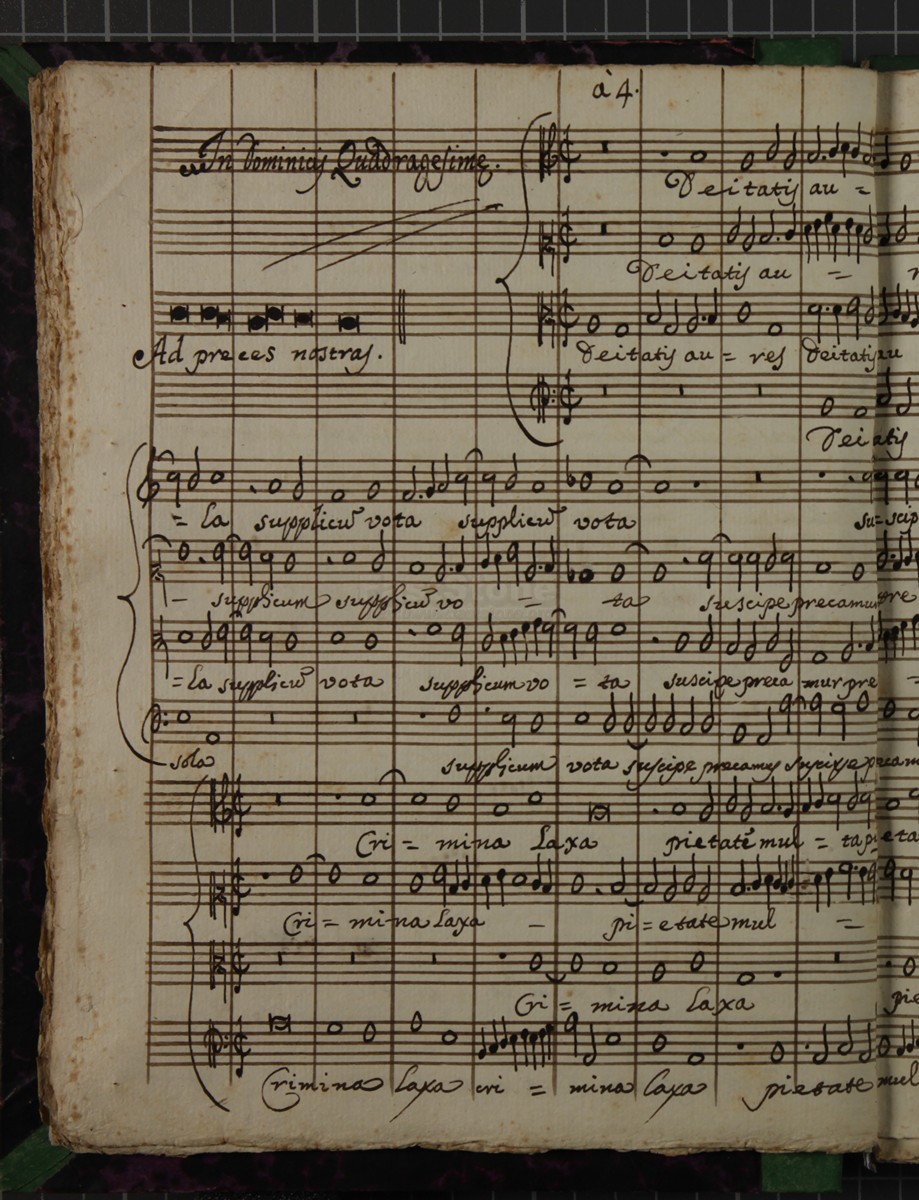 à 4.
In Dominicis Quadragesime.
Deitatis au =
Deitatis au =
Ad preces nostras.
Deitatis au = res Deitatis au
Deitatis
= la supplicũ vota supplicũ vota su = scip
supplicum supplicũ vo = ta suscipe precamur pre
= la supplicũ vota supplicum vo = ta suscipe preca = mur pre =
sola supplicum vota suscipe precamur suscipe precam
Cri = mina Laxa pietatẽ mul = ta pieta
Cri = mina laxa pi = etate mul =
Cri = mina laxa pie
Crimina laxa cri = mina laxa pietate mul